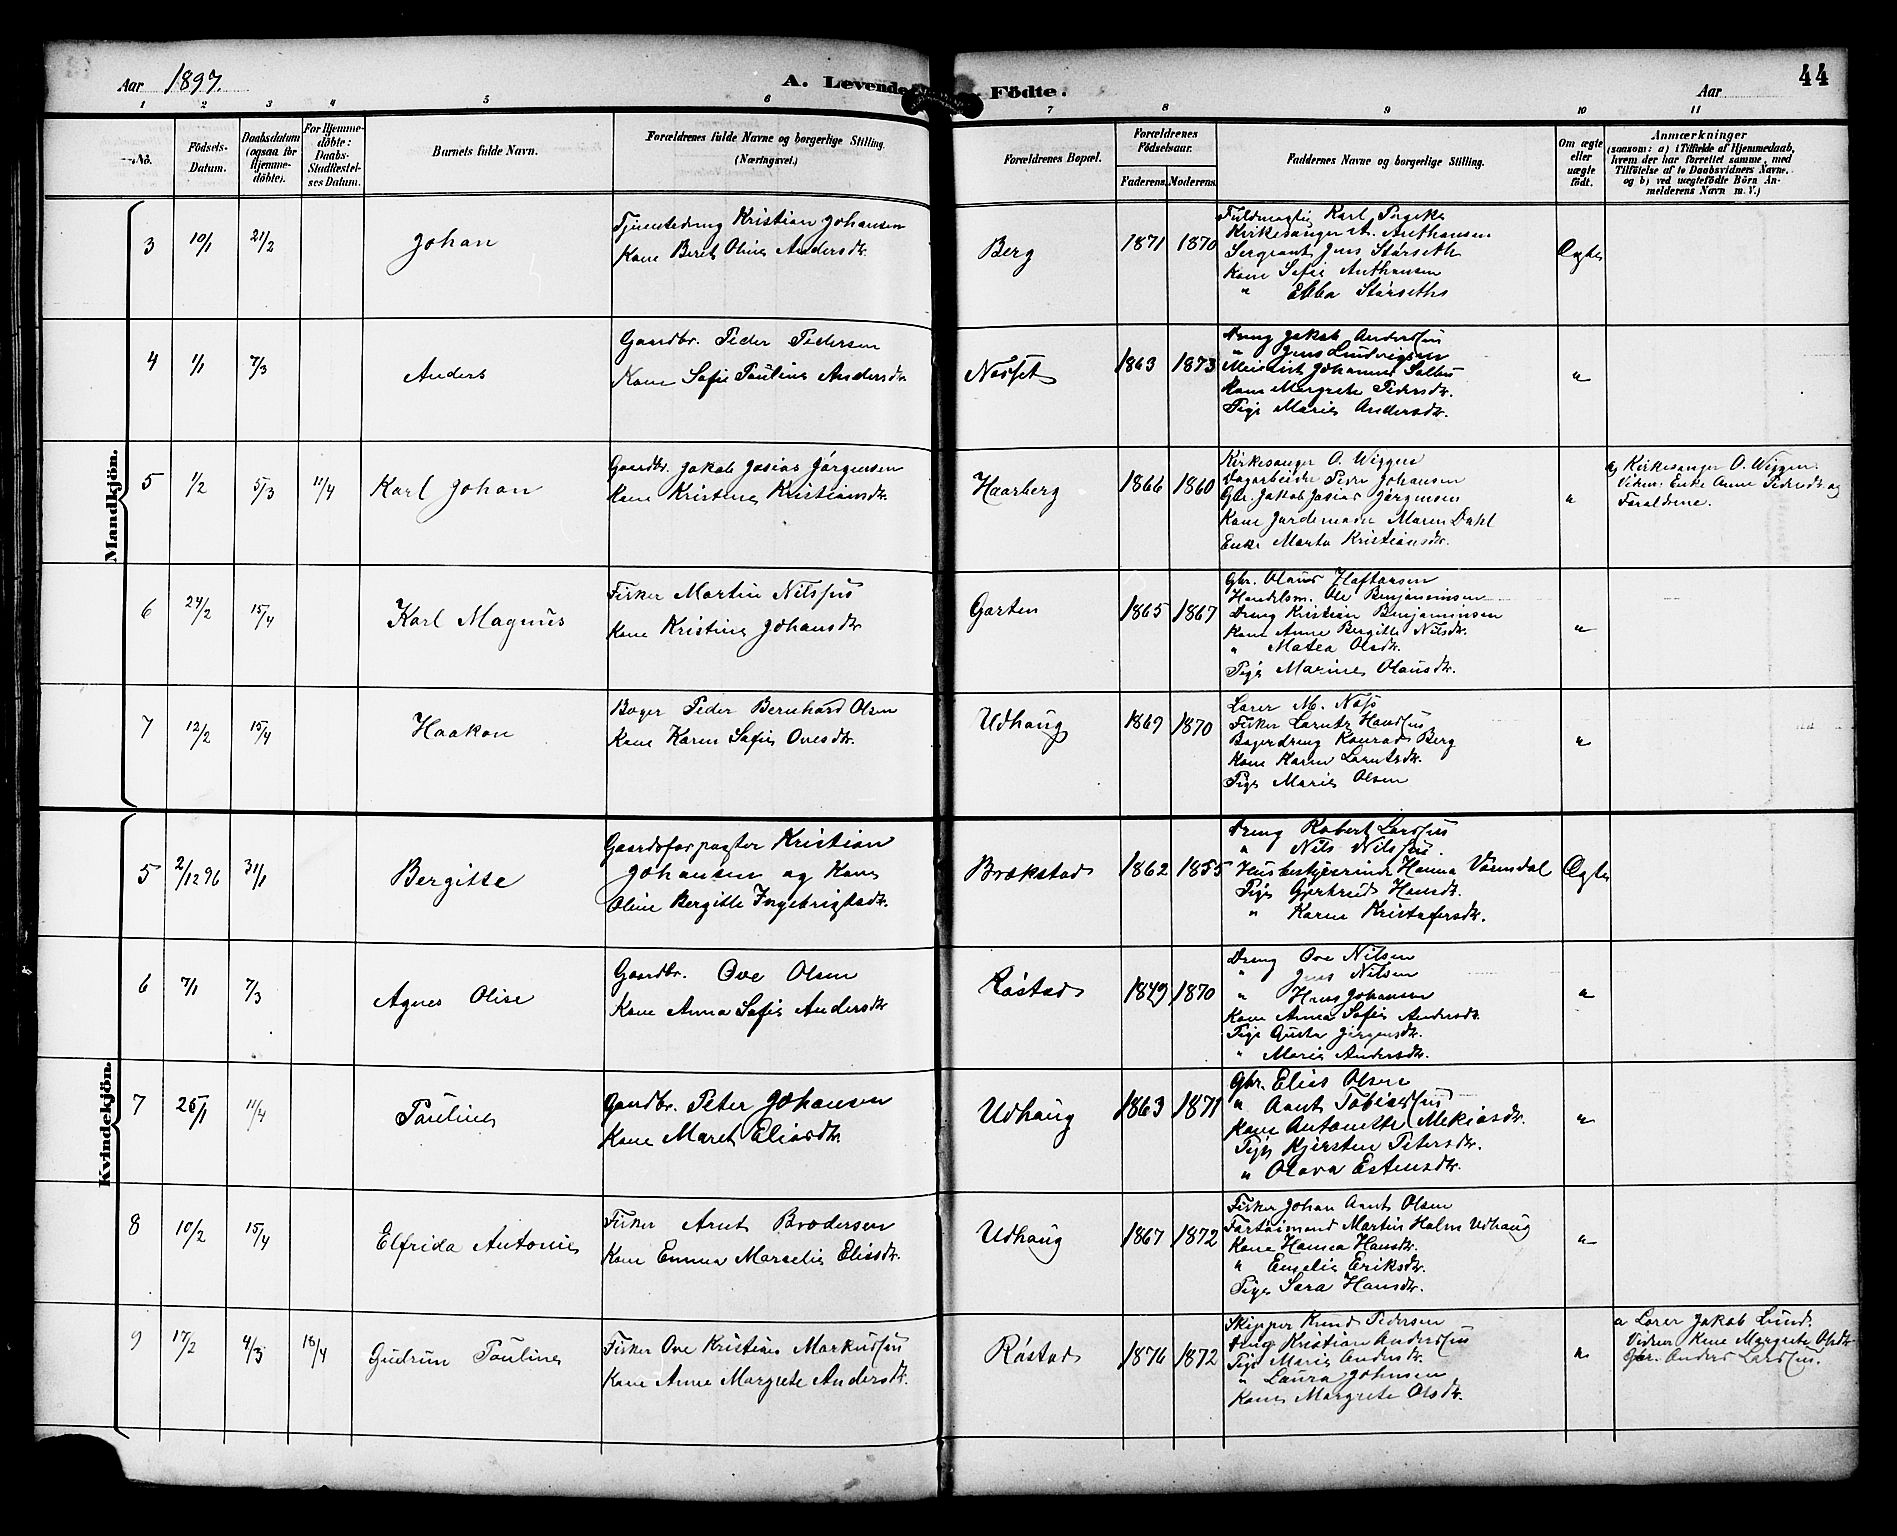 Aar 1897.
A. Levende Födte.
Aar
44
1 2 3 4 5 6 7 8 9 10 11
No.
Födsels-
Datum.
Daabsdatum
(ogsaa for
Hjemme-
döbte).
For Hjemme-
döbte:
Daabs-
Stadfæstel-
ses Datum.
Barnets fulde Navn.
Forældrenes fulde Navne og borgerlige Stilling.
(Næringsvei.)
Forældrenes Bopæl.
Forældrenes
Födselsaar.
Faderens. Moderens.
Faddernes Navne og borgerlige Stilling.
Om ægte
eller
uægte
født.
Anmærkninger
(saasom: a) i Tilfælde af Hjemmedaab,
hvem der har forrettet samme, med
Tilföielse af to Daabsvidners Navne,
og b) ved uægtefödte Börn An-
melderens Navn m. V.)
Mandkjön.
3 10/1 21/2 Johan
Tjenestedreng Kristian Johansen
Kone Beret Oline Andersdtr.
Berg 1871 1870
Fuldmægtig Karl
Kirkesanger A. Anthonsen
Sergeant Jens Størseth
Kone Sofie Anthonsen
" Ebba Størseth
Ægte
4 1/1 7/3 Anders
Gaardbr. Peder Pedersen
Kone Sofie Pauline Andersdtr.
Næsset 1863 1873
Dreng Jakob Anderssen
" Jens Ludvigsen
Johannes
Kone Margrete Pedersdtr.
Pige Marie Andersdtr.
"
5 1/2 5/3 11/4 Karl Johan
Gaardbr. Jakob Josias Jørgensen
Kone Kristine Kristiansdtr.
Haarberg 1866 1860
Kirkesanger O. Wiggen
Dagarbeider Peder Johansen
Gbr. Jakob Josias Jørgensen
Kone Jordemoder Maren Dahl
Enke Marta Kristiansdtr.
"
a) Kirkesanger O. Wiggen.
Vidner: Enke Anne Pedersdtr. og
Forældrene.
6 24/2 15/4 Karl Magnus
Fisker Martin Nilssen
Kone Kristine Johansdtr.
Garten 1865 1867
Gbr. Olaus Haftorsen
Handelsm. Ole Benjaminsen
Dreng Kristian Benjaminsen
Kone Anne Bergitte Nilsdtr.
" Matea Olsdtr.
Pige Marine Olausdtr.
"
7 12/2 15/4 Haakon
Bager Peder Bernhard Olsen
Kone Karen Sofie Ovesdtr.
Udhaug 1869 1870
Lærer M. Næss
Fisker Lorntz Hanssen
Bagerdreng Konrad Berg
Kone Karen Lorntsdtr.
Pige Marie Olsen
"
Kvindekjön.
5 2/12 96 31/1 Bergitte
Gaardsforpagter Kristian
Johansen og Kone
Oline Bergitte Ingebrigtsdtr.
Brækstad 1862 1855
Dreng Robert Larssen
" Nils Nilssen.
Husbestyrerinde Hanna Vanndal
Pige Gjertrud Hansdtr.
" Karen Kristofersdtr.
Ægte
6 7/1 7/3 Agnes Olise
Gaardbr. Ove Olsen
Kone Anna Sofie Andersdtr.
Røstad 1849 1870
Dreng Ove Nilsen
" Jens Nilsen
" Hans Johansen
Kone Anna Sofie Andersdtr.
Pige Gusta Jørgensdtr.
" Marie Andersdtr.
"
7 26/1 11/4 Pauline
Gaardbr. Peter Johansen
Kone Maret Eliasdtr.
Udhaug 1863 1871
Gbr. Elias Olsen
" Arnt Tobiassen
Kone Antonette Mekiasdtr.
Pige Kjersten Petersdtr.
" Olava Estensdtr.
"
8 10/2 15/4 Elfrida Antonie
Fisker Arnt Brodersen
Kone Emma Marselie Eliasdtr.
Udhaug 1867 1872
Fisker Johan Arnt Olsen
Fartøimand Martin Holm Udhaug
Kone Hanna Hansdtr.
" Emelie Eriksdtr.
Pige Sara Hansdtr.
"
9 17/2 4/3 18/4 Gudrun Pauline
Fisker Ove Kristian Markussen
Kone Anne Margrete Andersdtr.
Røstad 1876 1872
Skipper Knud Pedersen
Dreng Kristian Anderssen
Pige Marie Andersdtr.
" Laura Johnsen
Kone Margrete Olsdtr.
"
a Lærer Jakob Lund.
Vidner Kone Margrete Olsdtr.
Gbr. Anders Larssen.